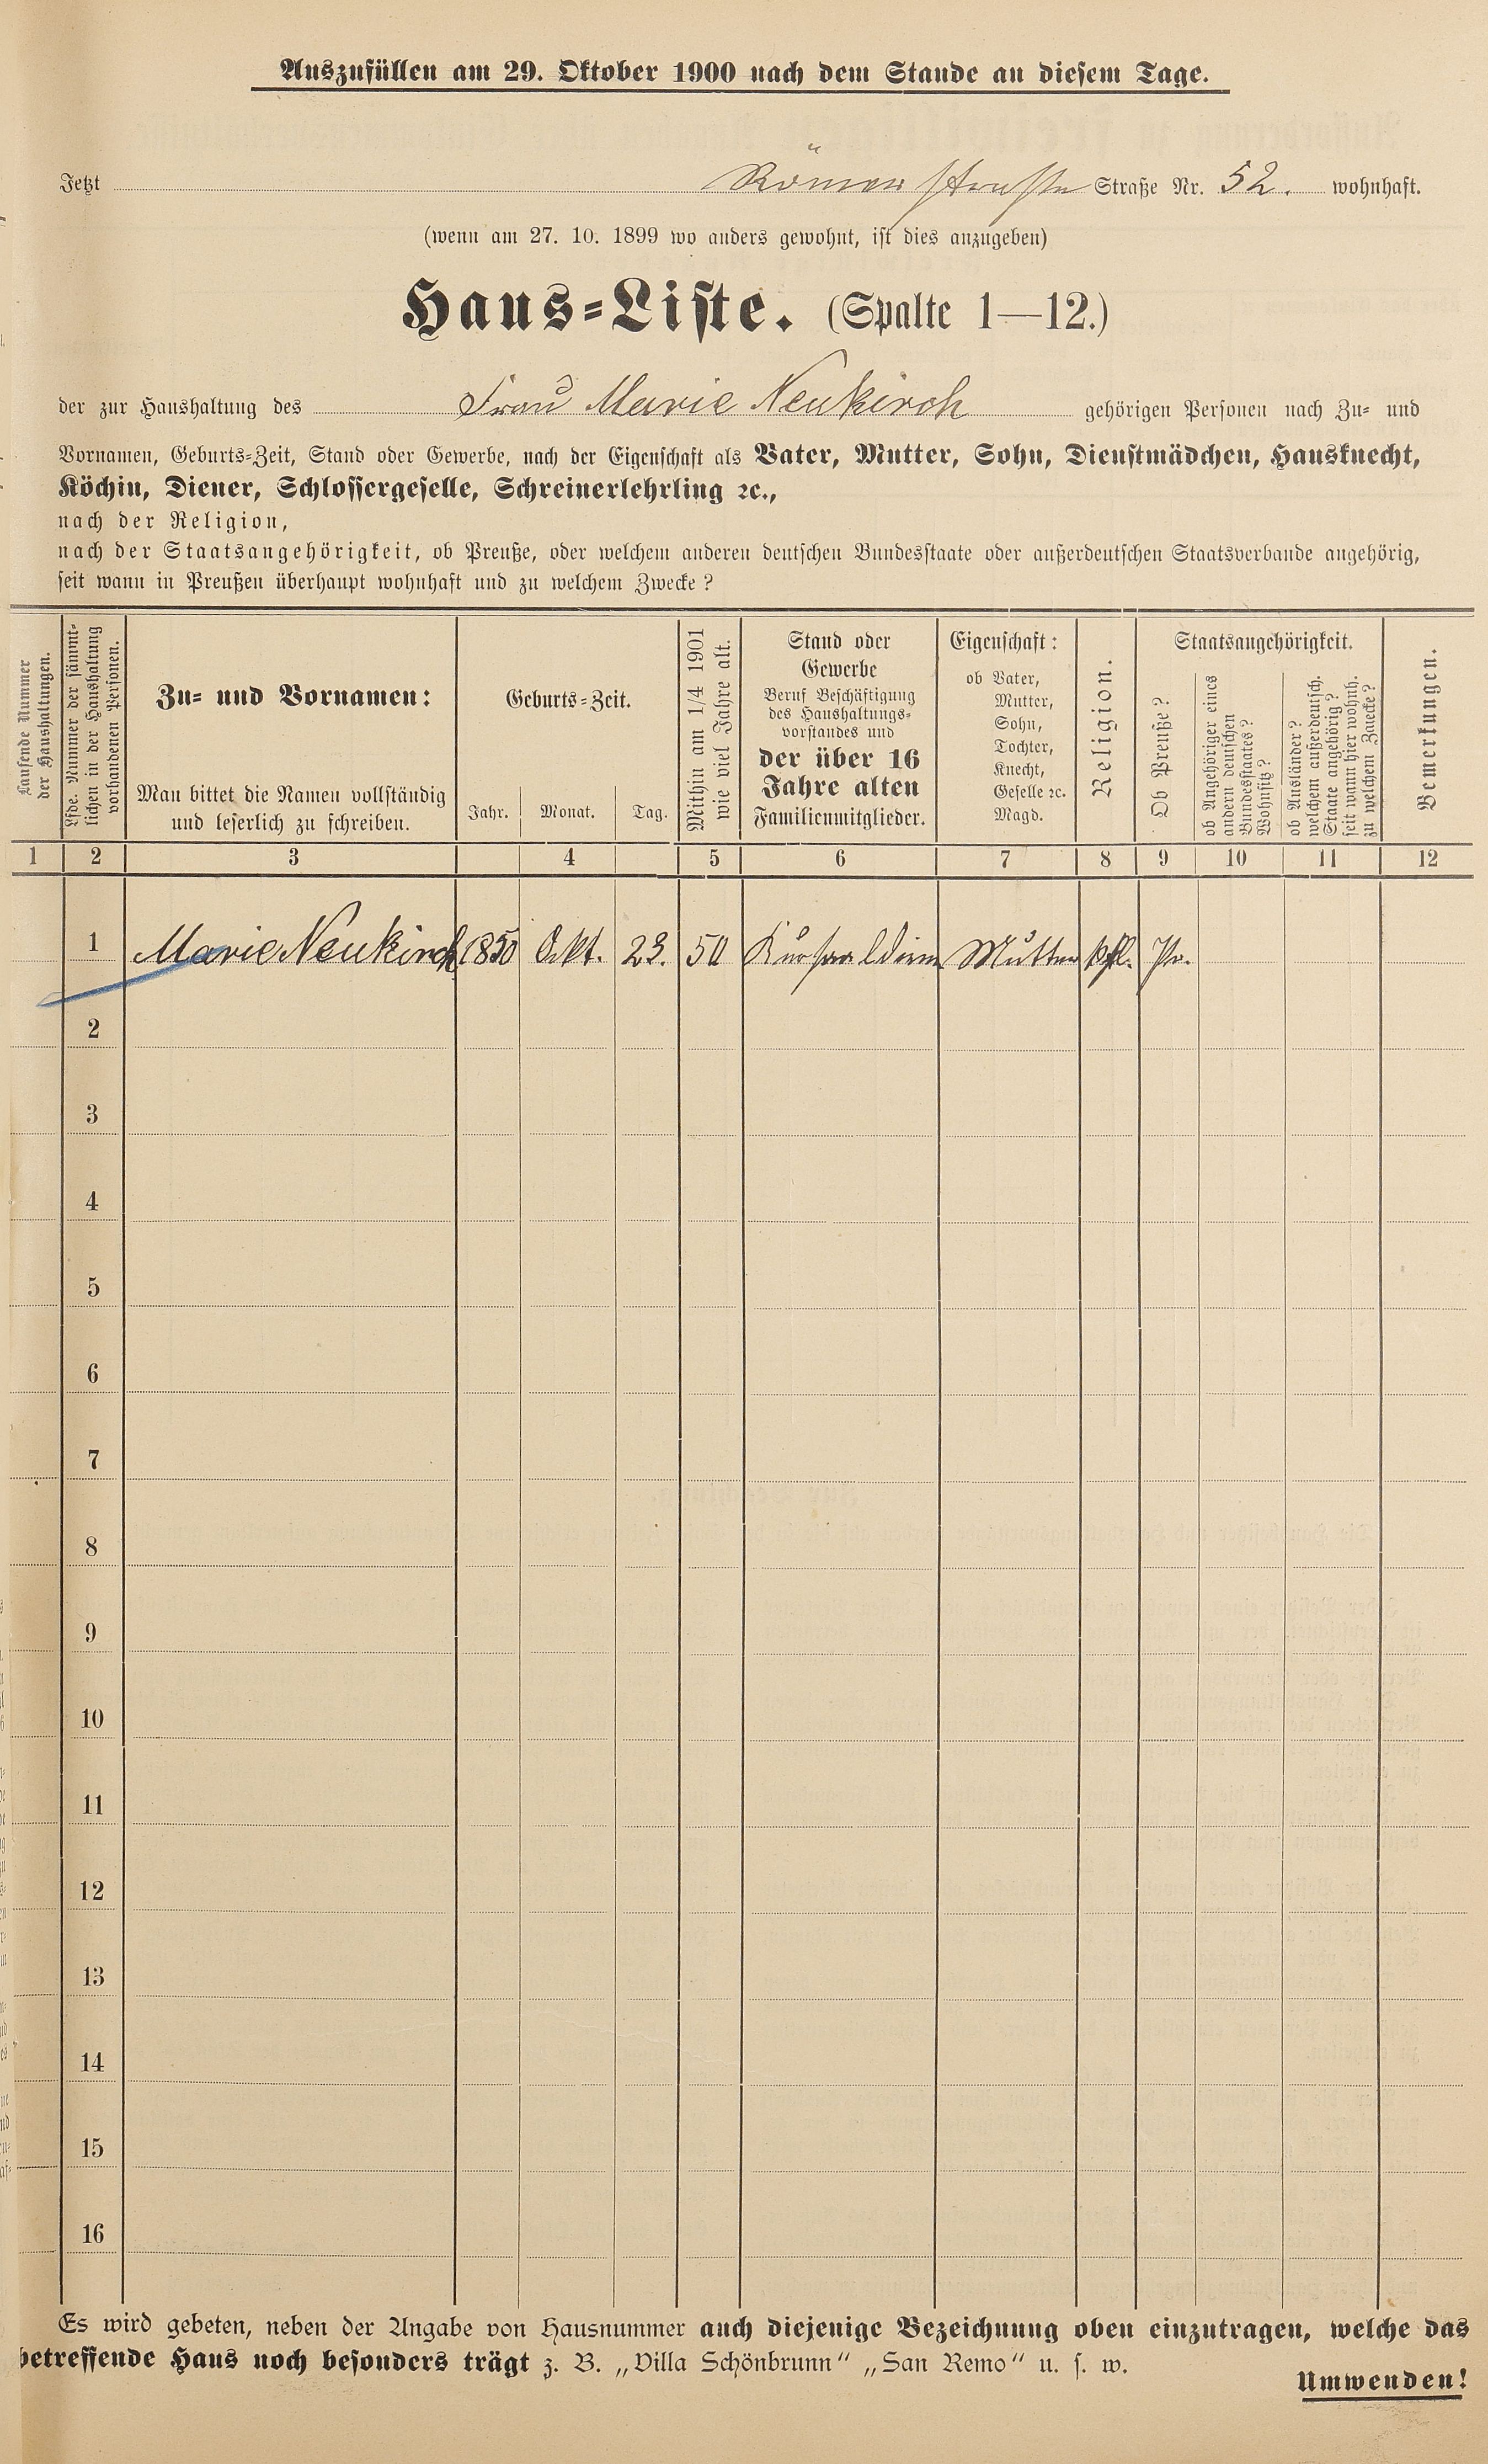 Auszufüllen am 29. Oktober 1900 nach dem Stande an diesem Tage.
Jetzt Römer Straße Straße Nr. 52. wohnhaft.
(wenn am 27. 10. 1899 wo anders gewohnt, ist dies anzugeben)
Haus-Liste. (Spalte 1—12.)
der zur Haushaltung des Frau Marie Neukirch gehörigen Personen nach Zu- und
Vornamen, Geburts-Zeit, Stand oder Gewerbe, nach der Eigenschaft als Vater, Mutter, Sohn, Dienstmädchen, Hausknecht,
Köchin, Diener, Schlossergeselle, Schreinerlehrling ꝛc.,
nach der Religion,
nach der Staatsangehörigkeit, ob Preuße, oder welchem anderen deutschen Bundesstaate oder außerdeutschen Staatsverbande angehörig,
seit wann in Preußen überhaupt wohnhaft und zu welchem Zwecke?
Laufende Nummer
der Haushaltungen.
Lfde. Nummer der sämmt-
lichen in der Haushaltung
vorhandenen Personen.
Zu- und Vornamen:
Man bittet die Namen vollständig
und leserlich zu schreiben.
Geburts-Zeit.
Jahr. Monat. Tag.
Mithin am 1/4 1901
wie viel Jahre alt.
Stand oder
Gewerbe
Beruf Beschäftigung
des Haushaltungs-
vorstandes und
der über 16
Jahre alten
Familienmitglieder.
Eigenschaft:
ob Vater,
Mutter,
Sohn,
Tochter,
Knecht,
Geselle ꝛc.
Magd.
Religion.
Staatsangehörigkeit.
Ob Preuße?
ob Angehöriger eines
andern deutschen
Bundesstaates?
Wohnsitz?
ob Ausländer?
welchem außerdeutsch.
Staate angehörig?
seit wann hier wohnh.
zu welchem Zwecke?
Bemerkungen.
1 2 3 4 5 6 7 8 9 10 11 12
1 Marie Neukirch 1850 Okt. 23. 50 Mutter Pr.
2
3
4
5
6
7
8
9
10
11
12
13
14
15
16
Es wird gebeten, neben der Angabe von Hausnummer auch diejenige Bezeichnung oben einzutragen, welche das
betreffende Haus noch besonders trägt z. B. „Villa Schönbrunn“ „San Remo“ u. s. w.
Umwenden!